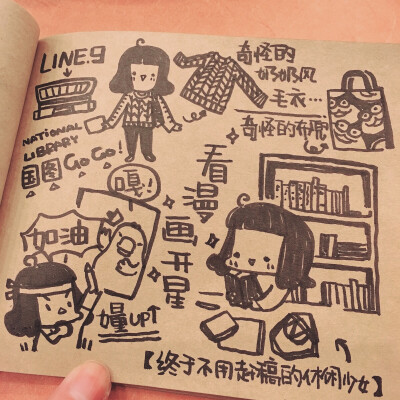 LINE.9
NATIONAL
LIBRARY
国图 GO GO!
奇怪的
奶奶风
毛衣…
奇怪的布
看漫画开星
嘎!
加油
up↑
【终于不用赶稿的休闲少女】